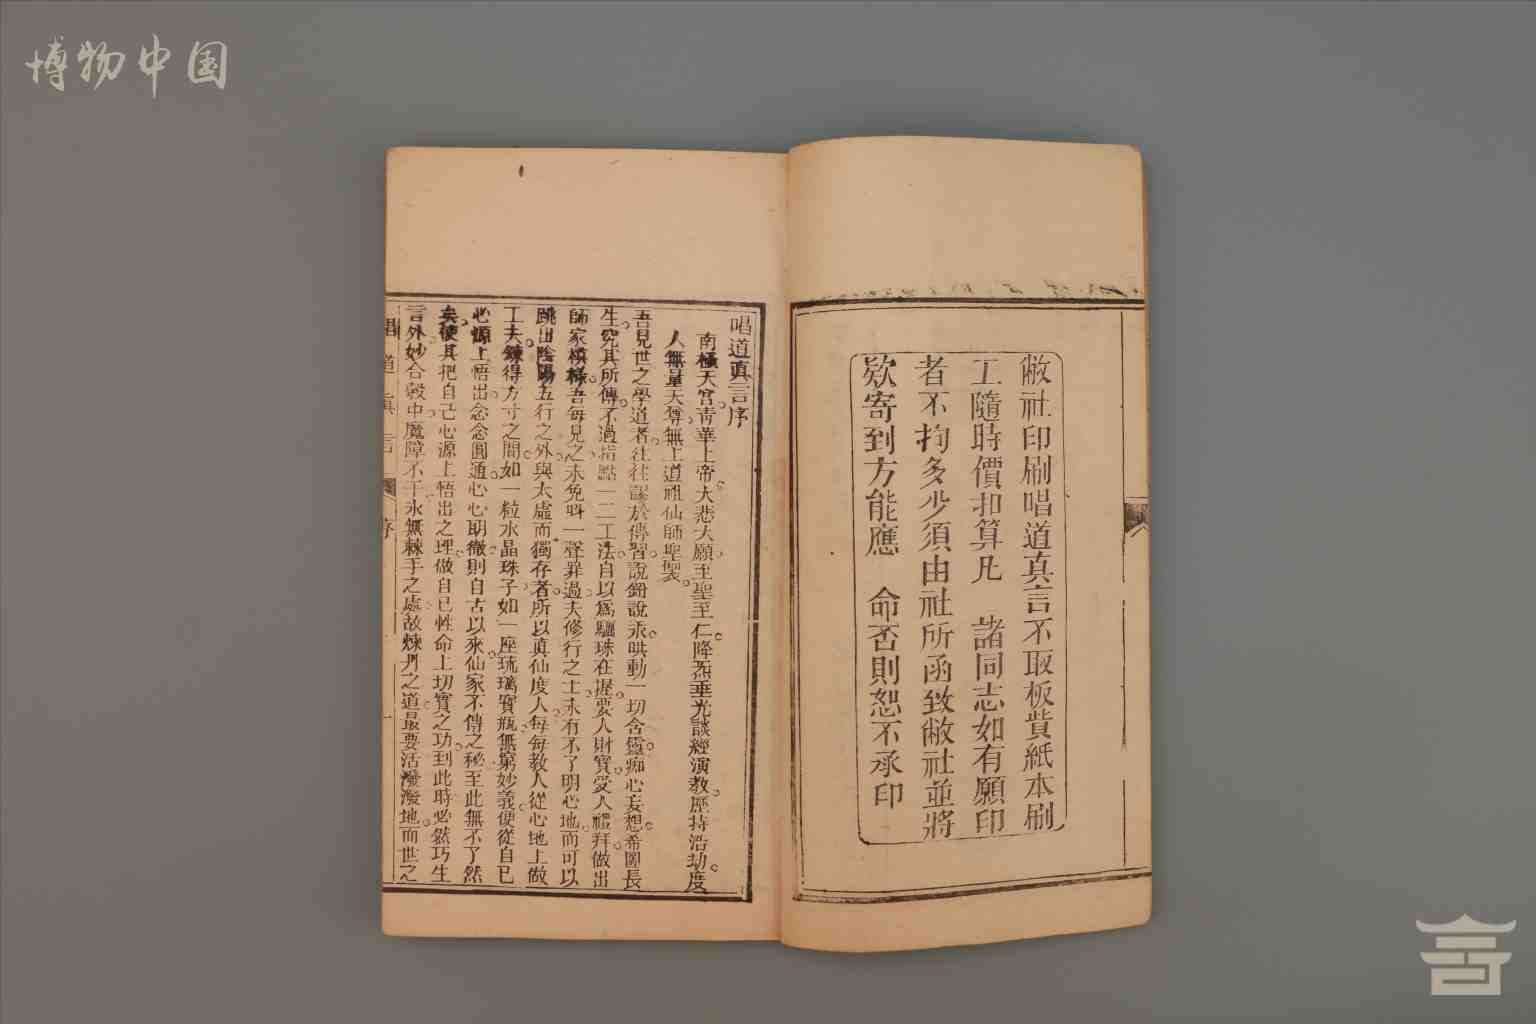 博物中国
敝社印刷唱道真言不取板費紙本刷
工隨時價扣算凡　諸同志如有願印
者不拘多少須由社所函致敝社並將
欵寄到方能應　命否則恕不承印
唱道真言序
南極天宮青華上帝大悲大願至聖至仁降炁垂光談經演教歷持浩劫度
人無量天尊無上道祖仙師聖製
吾見世之學道者往往謀於傳習說鉛說汞哄動一切含靈痴心妄想希圖長
生究其所傳不過指點一二工法自以為驪珠在握要人財寶受人禮拜做出
師家模樣吾每見之未免呌一聲罪過夫修行之士未有不了明心地而可以
跳出陰陽五行之外與太虛而獨存者所以真仙度人每每教人從心地上做
工夫鍊得方寸之間如一粒水晶珠子如一座琉璃寶瓶無窮妙義便從自已
心源上悟出念念圓通心心朗徹則自古以來仙家不傳之秘至此無不了然
矣使其把自己心源上悟出之理做自已性命上切實之功到此時必然巧生
言外妙合彀中魔障不干永無棘手之處故煉丹之道最要活潑潑地而世之
唱道真言
序
一